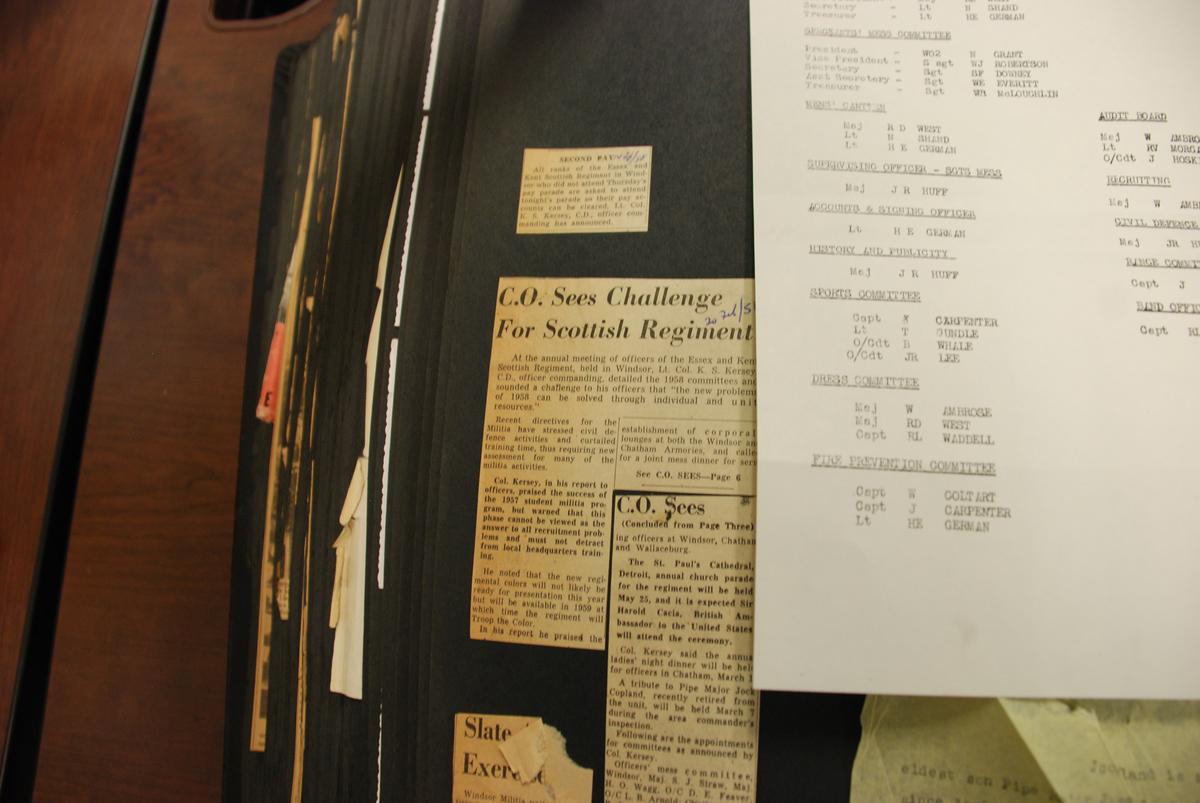 SECOND PAY
All ranks of the Essex and
Kent Scottish Regiment in Wind-
sor who did not attend Thursday's
pay parade are asked to attend
tonight's parade so their pay ac-
counts can be cleared, Lt. Col.
K. S. Kersey, C.D., officer com-
manding has announced.
C.O. Sees Challenge
For Scottish Regiment
At the annual meeting of officers of the Essex and Ken
Scottish Regiment, held in Windsor, Lt. Col. K. S. Kersey
C.D., officer commanding, detailed the 1958 committees and
sounded a challenge to his officers that "the new problem
of 1958 can be solved through individual and unit
resources."
Recent directives for the
Militia have stressed civil de-
fence activities and curtailed
training time, thus requiring new
assessment for many of the
militia activities.
Col. Kersey, in his report to
officers, praised the success of
the 1957 student militia pro-
gram, but warned that this
phase cannot be viewed as the
answer to all recruitment prob-
lems and must not detract
from local headquarters train-
ing.
He noted that the new regi-
mental colors will not likely be
ready for presentation this year
but will be available in 1959 at
which time the regiment will
Troop the Color.
In his report he praised the
establishment of corporal
lounges at both the Windsor an
Chatham Armories, and calle
for a joint mess dinner for serv
See C.O. SEES—Page 6
C.O. Sees
(Concluded from Page Three)
ing officers at Windsor, Chatham
and Wallaceburg.
The St. Paul's Cathedral,
Detroit, annual church parade
for the regiment will be held
May 25, and it is expected Sir
Harold Cacia, British Am-
bassador to the United States
will attend the ceremony.
Col. Kersey said the annua
ladies' night dinner will be hel
for officers in Chatham, March 1
A tribute to Pipe Major Jock
Copland, recently retired from
the unit, will be held March 7
during the area commander's
inspection.
Following are the appointments
for committees as announced by
Col. Kersey.
Officers' mess committee,
Windsor, Maj. S. J. Straw, Maj.
H. O. Wagg, O/C D. E. Feaver,
O/C L. B. Arnold, Chatham
Slate
Exercise
Windsor Militia
Secretary - Lt N SHAND
Treasurer - Lt HE GERMAN
SERGEANTS' MESS COMMITTEE
President - WO2 N GRANT
Vice President - S sgt WJ ROBERTSON
Secretary - Sgt SF DOWNEY
Asst Secretary - Sgt WE EVERITT
Treasurer - Sgt WR McLOUGHLIN
MENS' CANTEEN
Maj R D WEST
Lt N SHAND
Lt H E GERMAN
SUPERVISING OFFICER - SGTS MESS
Maj J R HUFF
ACCOUNTS & SIGNING OFFICER
Lt H E GERMAN
HISTORY AND PUBLICITY
Maj J R HUFF
SPORTS COMMITTEE
Capt CARPENTER
Lt T GUNDLE
O/Cdt B WHALE
O/Cdt JR LEE
DRESS COMMITTEE
Maj W AMBROSE
Maj RD WEST
Capt RL WADDELL
FIRE PREVENTION COMMITTEE
Capt W COLTART
Capt J CARPENTER
Lt HE GERMAN
AUDIT BOARD
Maj W AMBRO
Lt RV MORGA
O/Cdt J HOSK
RECRUITING
Maj W AMB
CIVIL DEFENCE
Maj JR H
RANGE COMMIT
Capt J
BAND OFFI
Capt RL
eldest son Pipe
since